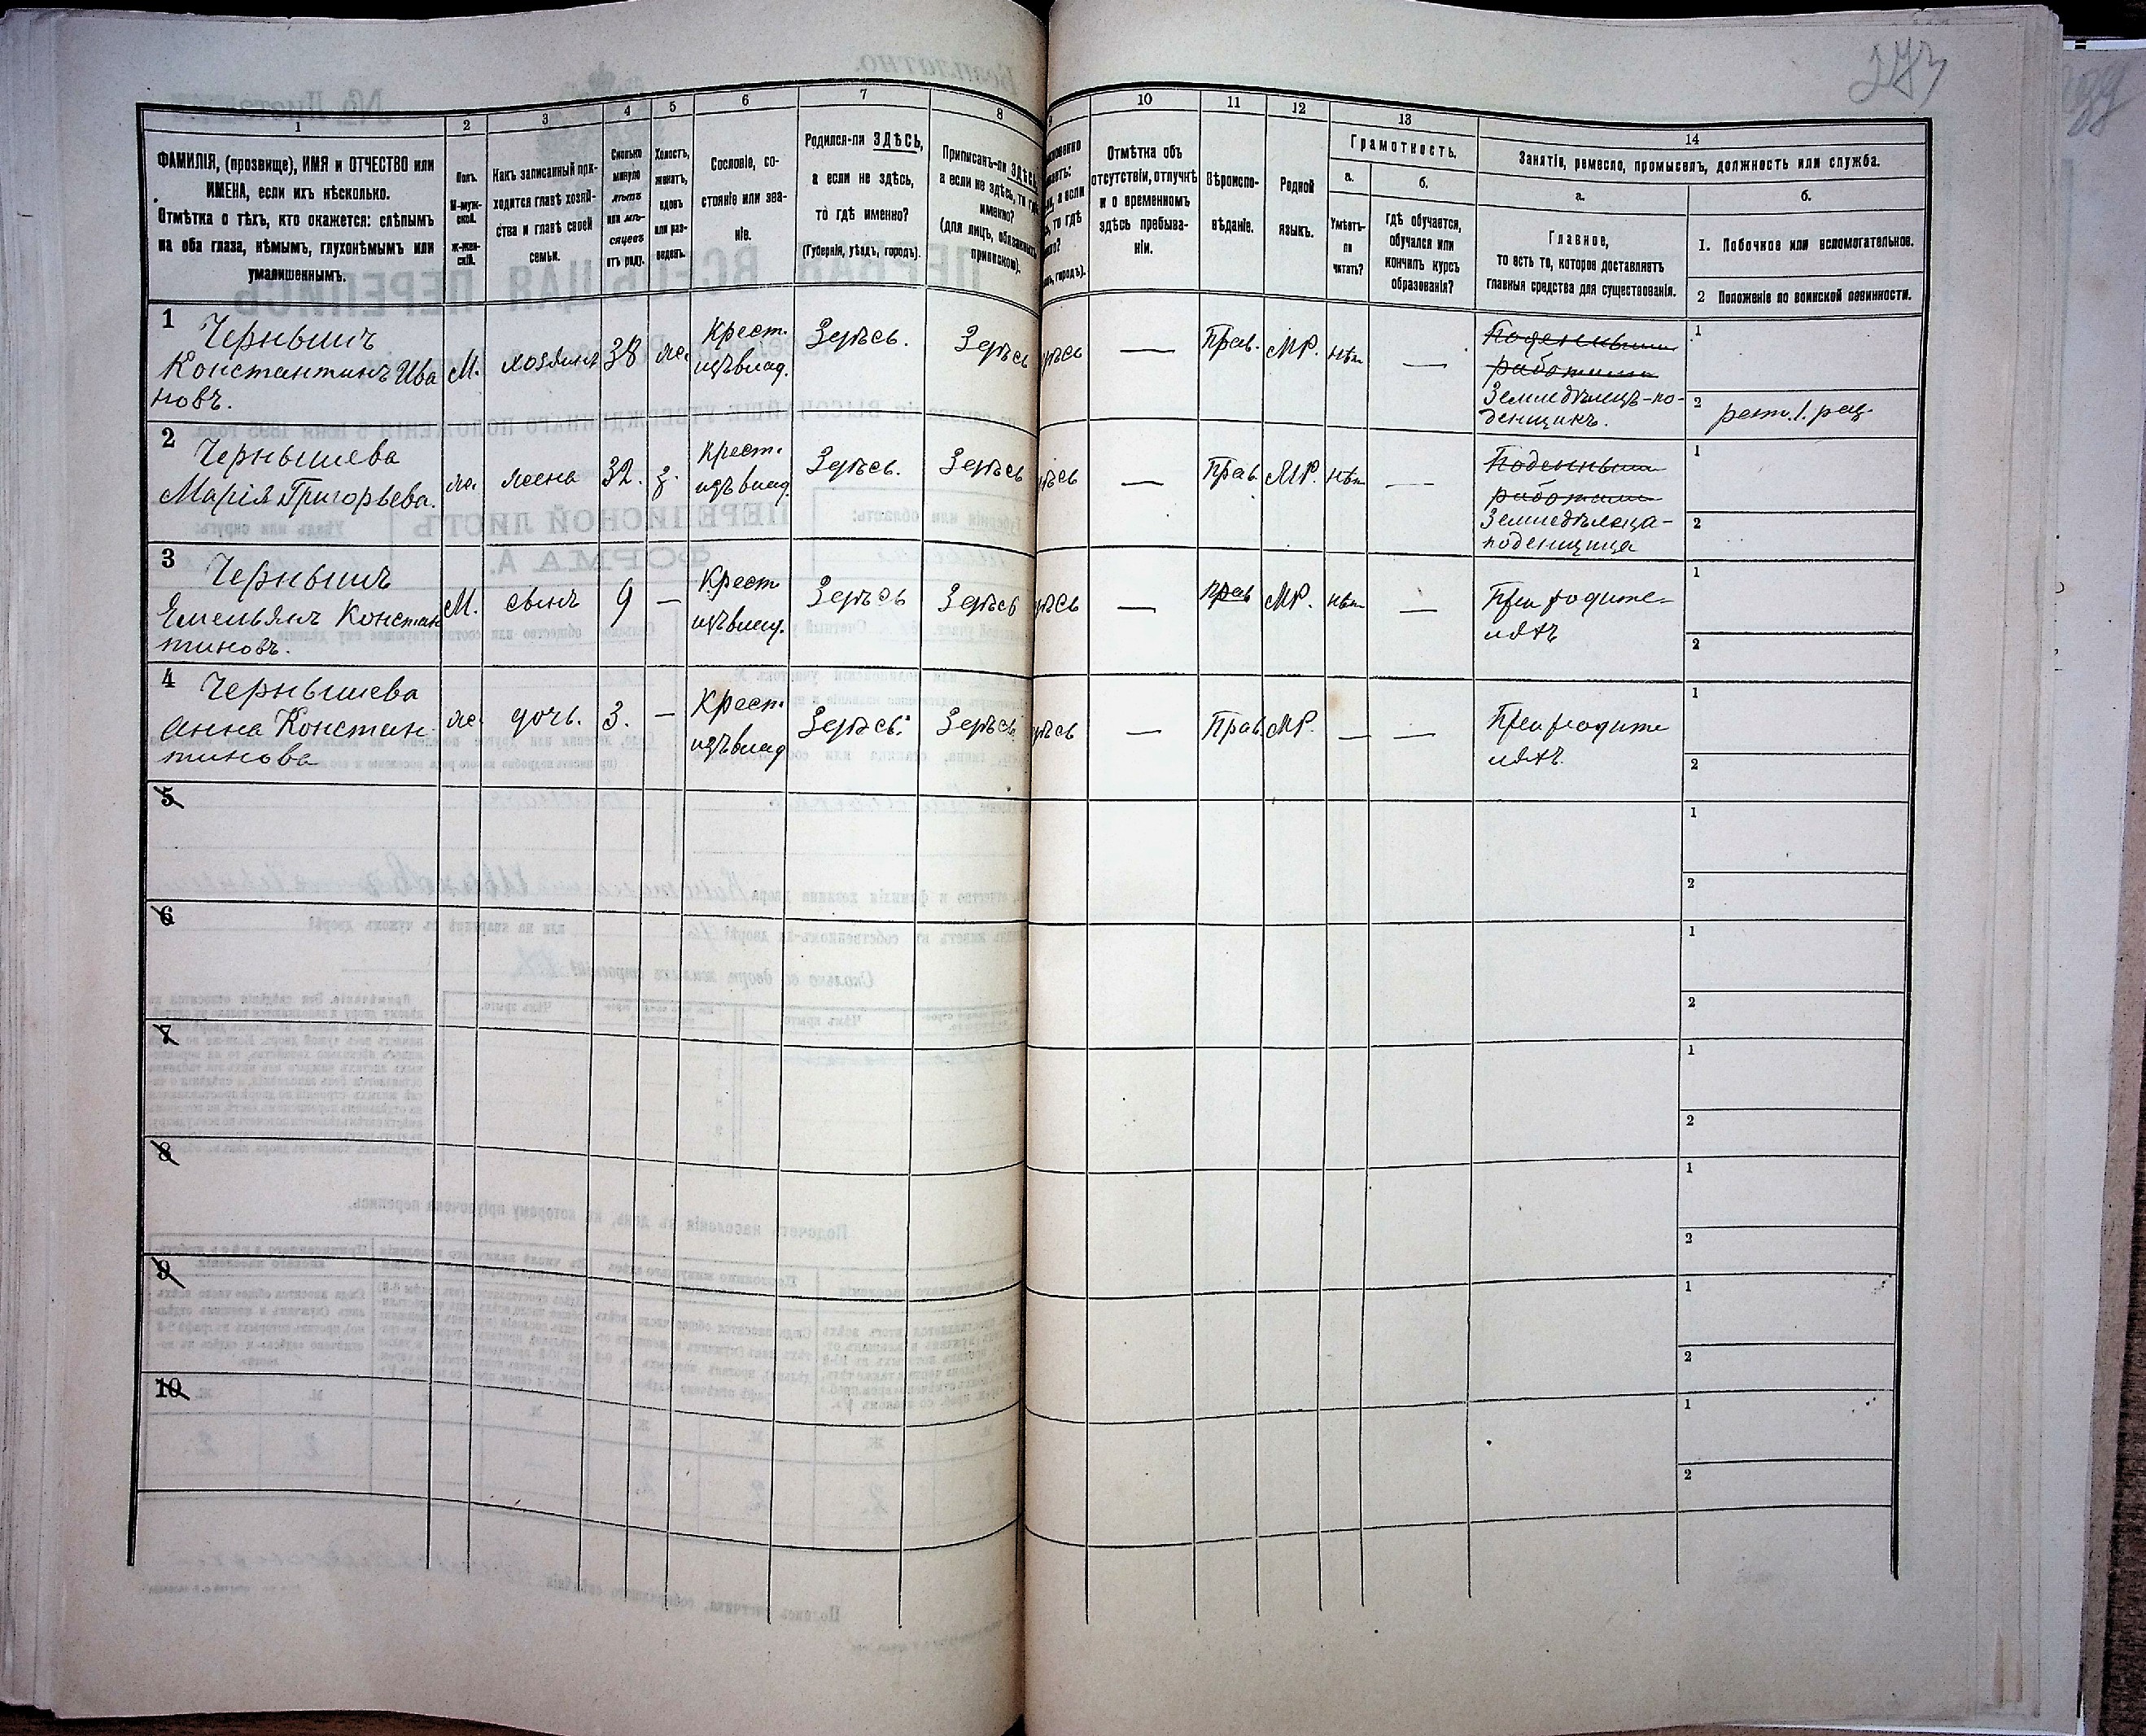 273
1
2
3
4
5
6
7
8
10
11
12
13
14
ФАМИЛІЯ, (прозвище), ИМЯ и ОТЧЕСТВО или
ИМЕНА, если ихъ нѣсколько.
Отмѣтка о тѣхъ, кто окажется: слѣпымъ
на оба глаза, нѣмымъ, глухонѣмымъ или
умалишеннымъ.
Полъ.
М-муж-
ской.
Ж-жен-
скій.
Какъ записанный при-
ходится главѣ хозяй-
ства и главѣ своей
семьи.
Сколько
минуло
лѣтъ
или мѣ-
сяцевъ
отъ роду.
Холостъ,
женатъ,
вдовъ
или раз-
веденъ.
Сословіе, со-
стояніе или зва-
ніе.
Родился-ли ЗДѢСЬ,
а если не здѣсь,
то гдѣ именно?
(Губернія, уѣздъ, городъ).
Приписанъ-ли ЗДѢСЬ,
а если не здѣсь, то гдѣ
именно?
(для лицъ, обязанныхъ
припискою).
Отмѣтка объ
отсутствіи, отлучкѣ
и о временномъ
здѣсь пребыва-
ніи.
Вѣроиспо-
вѣданіе.
Родной
языкъ.
Грамотность.
а.
б.
Умѣетъ-
ли
читать?
гдѣ обучается,
обучался или
кончилъ курсъ
образованія?
Занятіе, ремесло, промыселъ, должность или служба.
а.
б.
Главное,
то есть то, которое доставляетъ
главныя средства для существованія.
1. Побочное или вспомогательное.
2 Положеніе по воинской повинности.
1 Чернышъ
Константинъ Ива
новъ.
М.
хозяинъ
38
же.
Крест.
изъ влад.
Здѣсь.
Здѣсь
—
Прав.
МР.
нѣт
—
Поденный
работникъ
Земледѣлецъ-по-
денщикъ.
1
2
рат. 1. раз.
2 Чернышева
Марія Григорьева.
же.
жена
32.
з.
Крест.
изъ влад.
Здѣсь.
Здѣсь
—
Прав.
МР.
нѣт
—
Земледѣлица-
поденщица
1
2
3 Чернышъ
Емельянъ Констан
тиновъ.
М.
сынъ
9
—
Крест
изъ влад.
Здѣсь
Здѣсь
—
прав
МР.
нѣт
—
При родите-
ляхъ
1
2
4 Чернышева
Анна Констан-
тинова
же.
дочь.
3.
—
Крест.
изъ влад
Здѣсь.
Здѣсь.
—
Прав.
МР.
—
—
При родите
ляхъ.
1
2
5
1
2
6
1
2
7
1
2
8
1
2
9
1
2
10
1
2